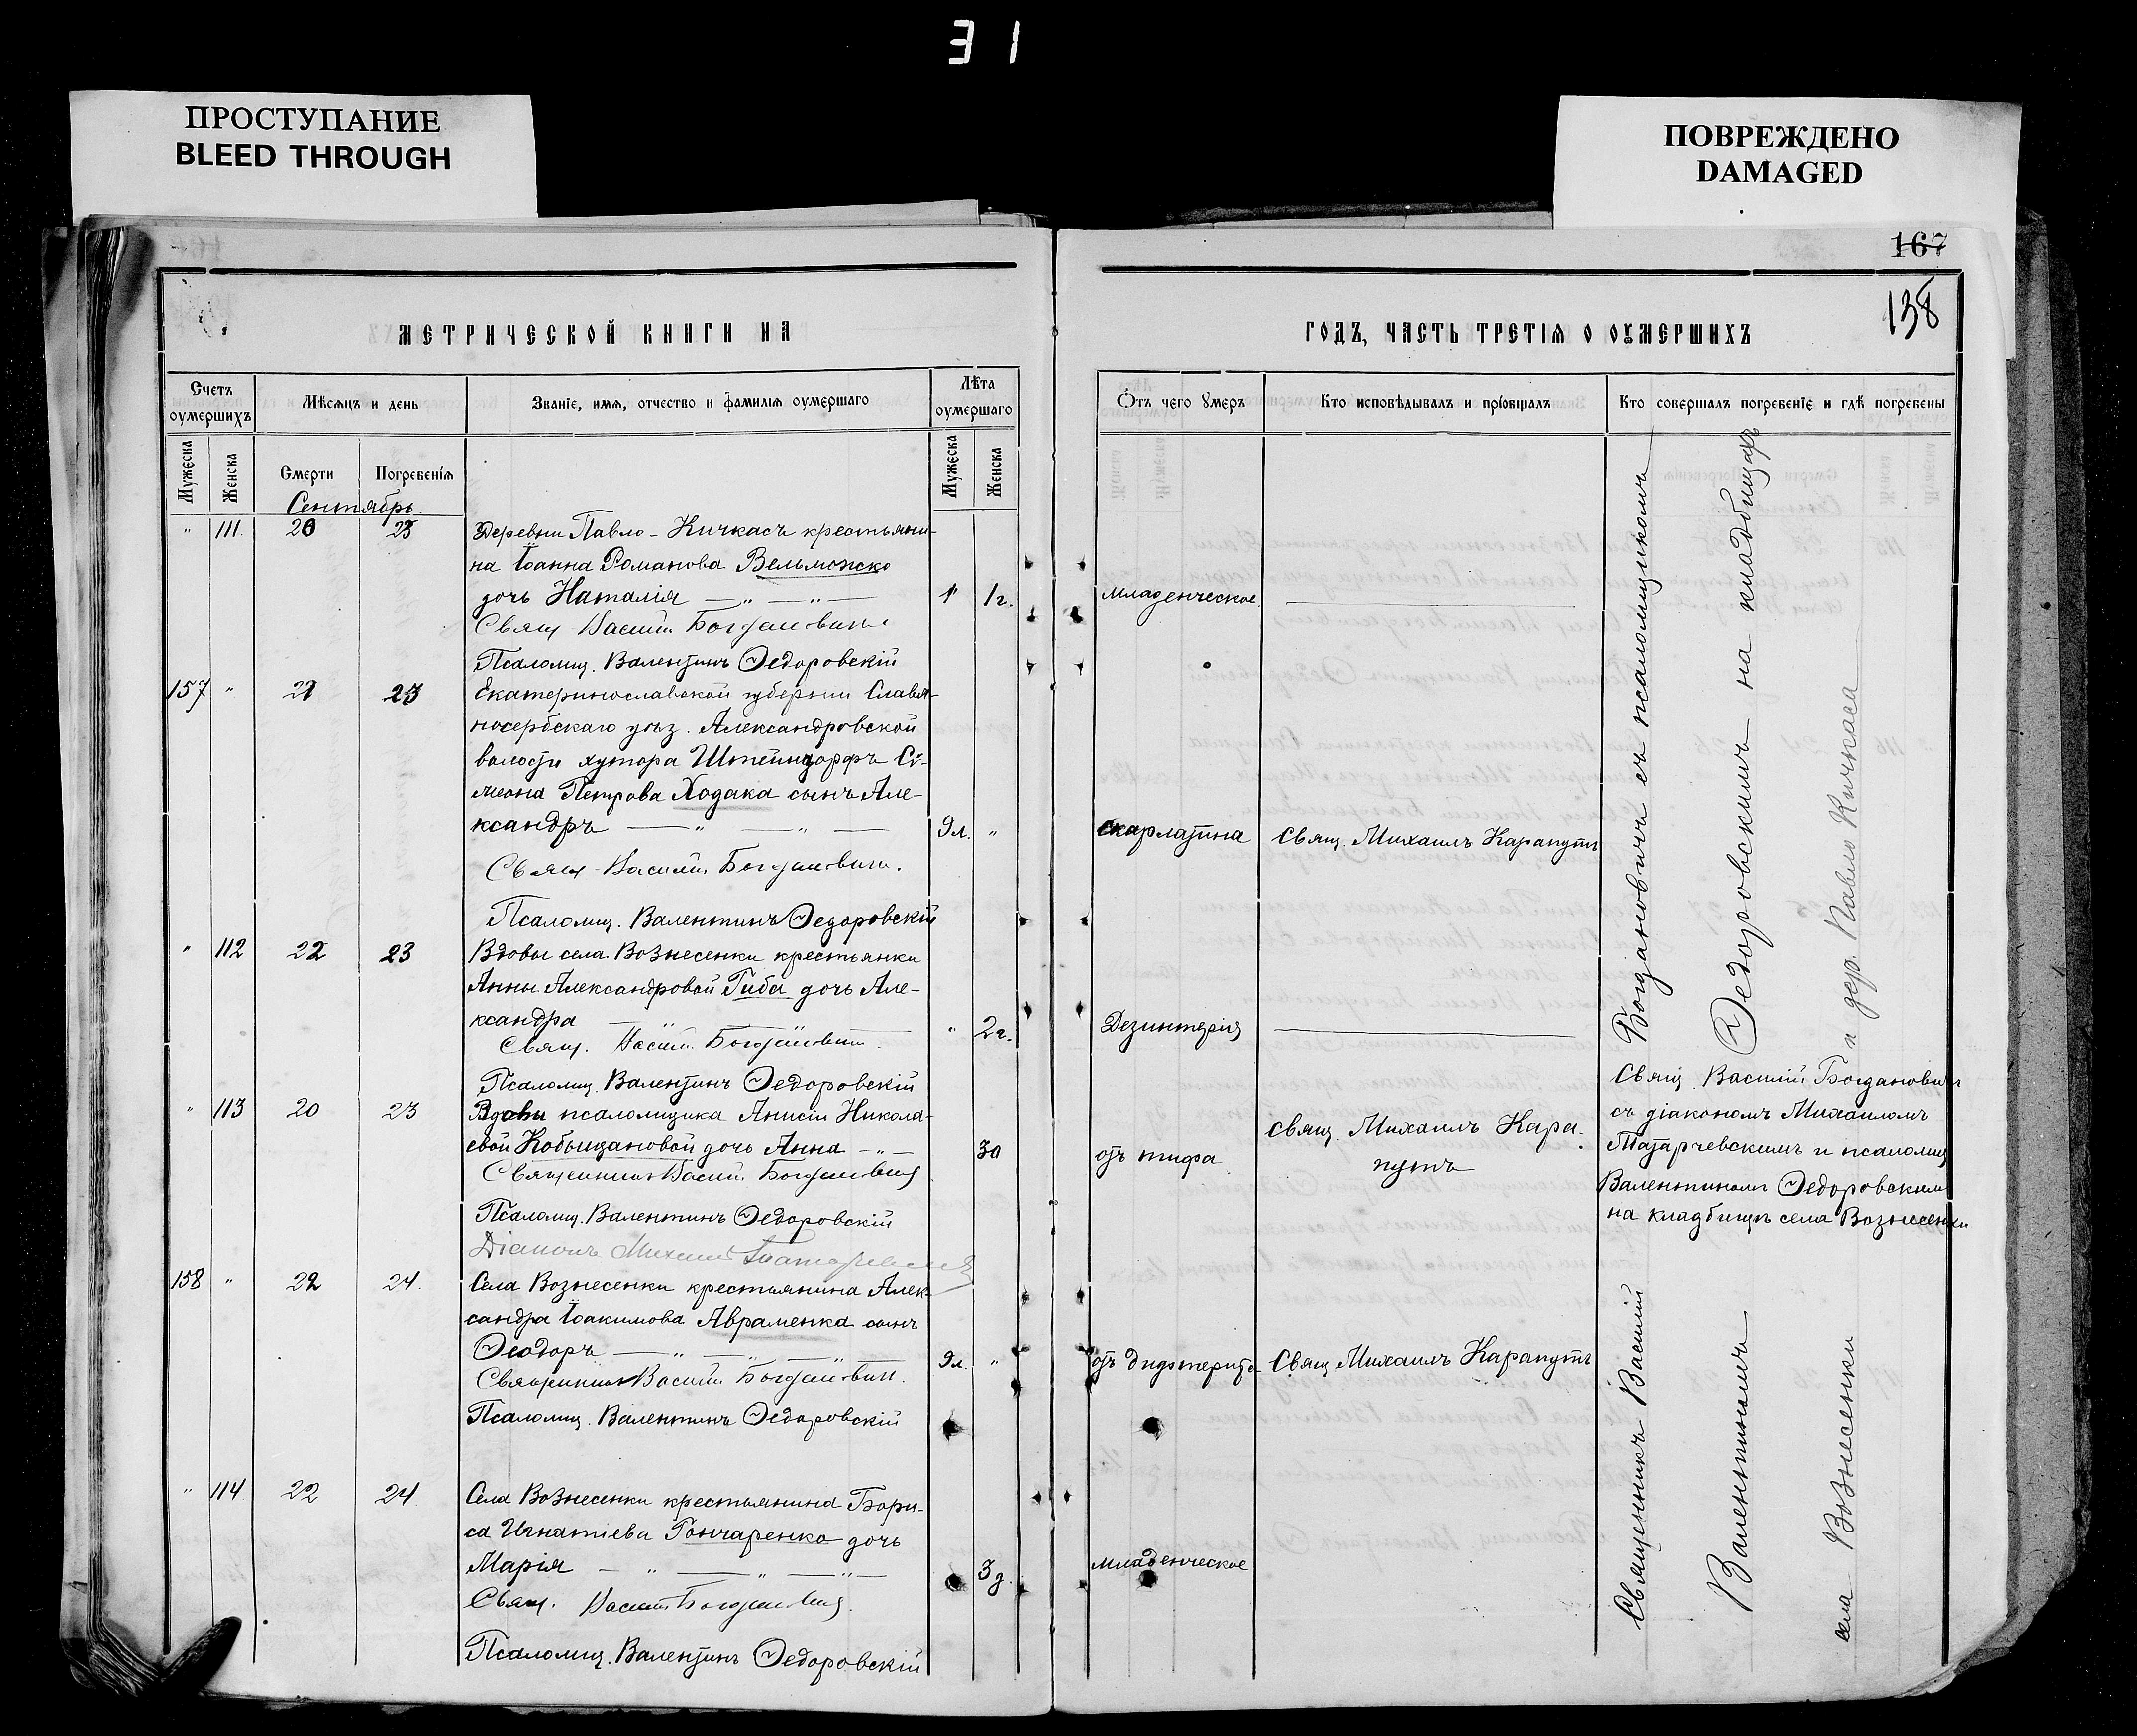 31
ПРОСТУПАНИЕ
BLEED THROUGH
ПОВРЕЖДЕНО
DAMAGED
167
138
МЕТРИЧЕСКОЙ КНИГИ НА
ГОДЪ, ЧАСТЬ ТРЕТІЯ О ОУМЕРШИХЪ
Счетъ оумершихъ
Мѣсяцъ и день
Званіе, имя, отчество и фамилія оумершаго
Лѣта оумершаго
Отъ чего умеръ
Кто исповѣдывалъ и пріобщалъ
Кто совершалъ погребеніе и гдѣ погребены
Мужеска
Женска
Смерти
Погребенія
Мужеска
Женска
Сентябрь.
" 111. 20 23 Деревни Павло-Кичкасъ крестьяни-
на Іоанна Романова Вельможко
дочь Наталія — " — " — 1г. младенческое
Свящ. Василій Богдановичъ
Псаломщ. Валентинъ Ѳедоровскій
157 " 21 23 Екатеринославской губерніи Славя-
носербскаго уѣз. Александровской
волости хутора Штейндорфъ Си-
меона Петрова Ходака сынъ Але-
ксандръ — " — " — 9л. " скарлатина Свящ. Михаилъ Карапутъ
Свящ. Василій Богдановичъ.
Псаломщ. Валентинъ Ѳедоровскій
" 112 22 23 Вдовы села Вознесенки крестьянки
Анны Александровой Гиба дочь Але-
ксандра — " — " — " 2г. Дезинтерія
Свящ. Василій Богдановичъ.
Псаломщ. Валентинъ Ѳедоровскій
" 113 20 23 Вдовы псаломщика Анисіи Никола-
евой Кобыщановой дочь Анна — " — 30 отъ тифа свящ. Михаилъ Кара-
путъ
Священникъ Василій Богдановичъ
Псаломщ. Валентинъ Ѳедоровскій
Діаконъ Михаилъ Татарчевскій
Свящ. Василій Богдановичъ
съ діакономъ Михаиломъ
Татарчевскимъ и псаломщ
Валентиномъ Ѳедоровскимъ
на кладбищѣ села Вознесенки
158 " 22 24. Села Вознесенки крестьянина Алек-
сандра Іоакимова Авраменка сынъ
Ѳеодоръ — " — " — 9л. " отъ дифтерита Свящ. Михаилъ Карапутъ
Священникъ Василій Богдановичъ.
Псаломщ. Валентинъ Ѳедоровскій
" 114. 22 24 Села Вознесенки крестьянина Бори-
са Игнатіева Гончаренко дочь
Марія — " — " — " — 3д. младенческое
Свящ. Василій Богдановичъ.
Псаломщ. Валентинъ Ѳедоровскій
Священникъ Василій Богдановичъ съ псаломщикомъ
Валентиномъ Ѳедоровскимъ на кладбищахъ
села Вознесенки и дер. Павло Кичкаса